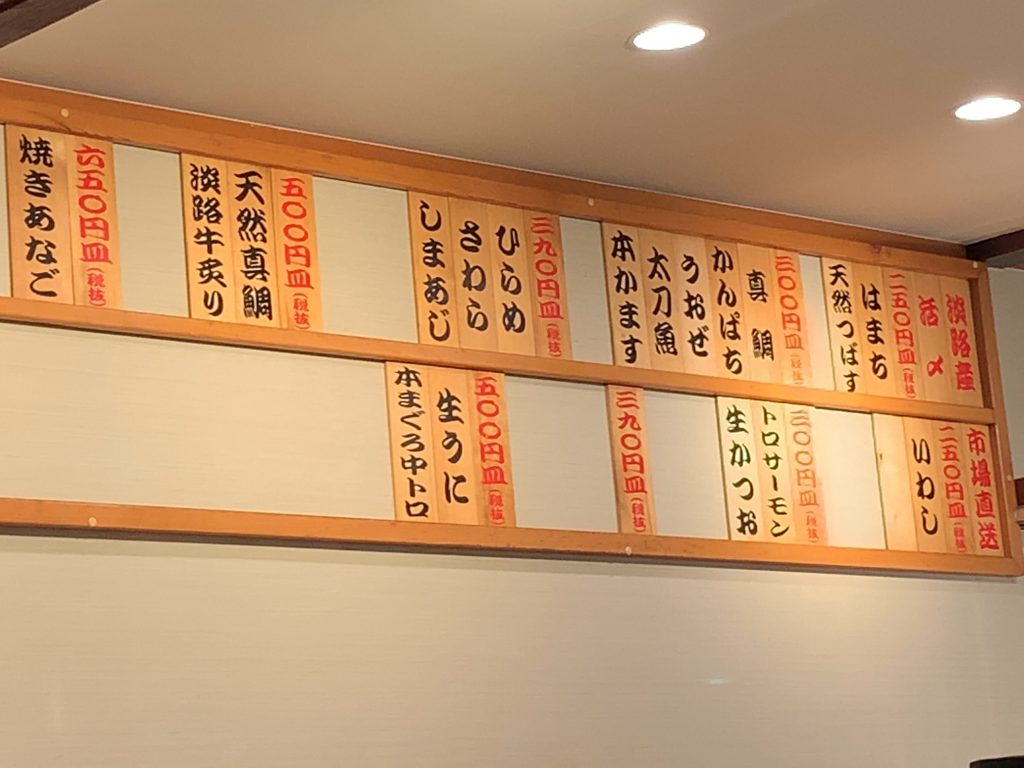 淡路産
活〆
二五〇円皿(税抜)
はまち
天然つばす
三〇〇円皿(税抜)
真鯛
かんぱち
うおぜ
太刀魚
本かます
三九〇円皿(税抜)
ひらめ
さわら
しまあじ
五〇〇円皿(税抜)
天然真鯛
淡路牛炙り
六五〇円皿(税抜)
焼きあなご
市場直送
二五〇円皿(税抜)
いわし
三〇〇円皿(税抜)
トロサーモン
生かつお
三九〇円皿(税抜)
五〇〇円皿(税抜)
生うに
本まぐろ中トロ